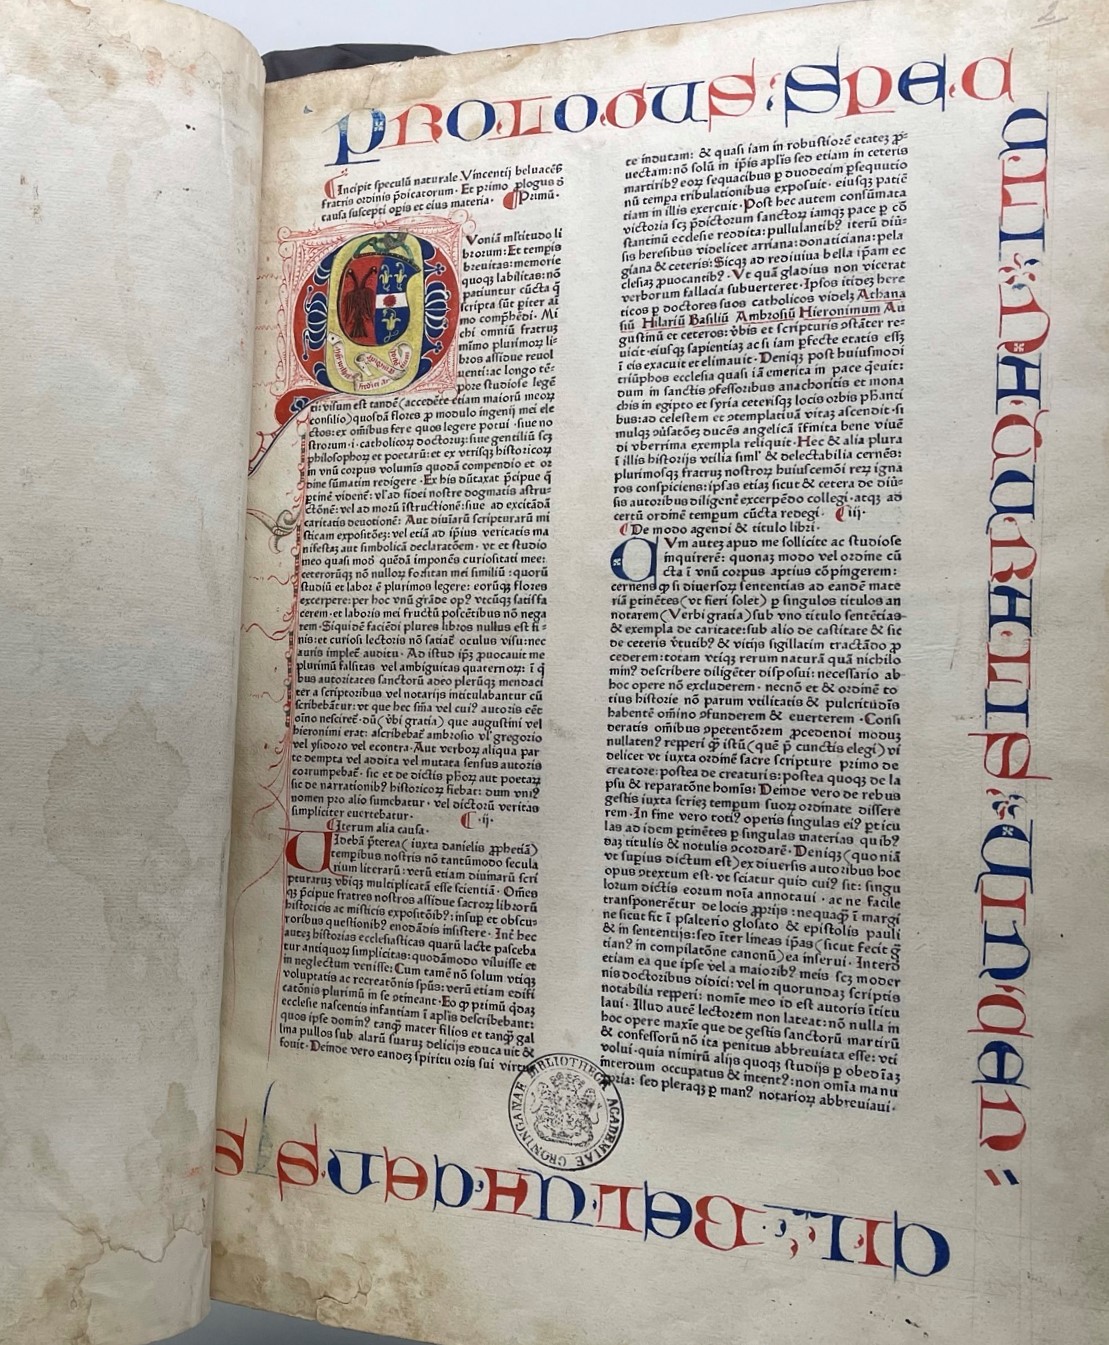 PROLOGUS : SPEC
ULI : NATURALIS : VINCEN
CII : BELVACENS
Incipit speculū naturale Vincentij beluaceñ
fratris ordinis p̄dicatorum. Et primo ꝓlogus ð
causa suscepti opis et eius materia. Primū.
Voniā mltitudo li
brorum: Et tempis
breuitas: memorie
quoqꝫ labilitas: nō
patiuntur cūcta q̄
scripta sūt piter ai
mo comphēdi. Mi
chi omniū fratruꝫ
mīmo plurimoꝝ li⸗
bros assidue reuol
uenti: ac longo tē⸗
pore studiose legē
ti: visum est tandē (accedēte etiam maiorū meoꝝ
consilio) quosdā flores ꝓ modulo ingenij mei ele
ctos: ex omībus fere quos legere potui. siue no
strorum. i. catholicoꝝ doctoꝝ: siue gentiliū scꝫ
philosophoꝝ et poetarū: et ex vtrisqꝫ historicoꝝ
in vnū corpus volumīs quodā compendio et or
dine sūmatim redigere. Ex his dūtaxat p̄cipue q̄
caritatis deuotionē: Aut diuīarū scripturarū mi
sticam expositōeꝫ: vel etiā ad ip̄ius veritatis ma
nifestaꝫ aut simbolicā declaratōem. vt et studio
meo quasi modū quēdā imponēs curiositati mee:
ceterorūqꝫ nō nulloꝝ forsitan mei similiū: quorū
studiū et labor ē plurimos legere: eorūqꝫ flores
excerpere: per hoc vnū grāde opꝰ vtcūqꝫ satisfa
cerem. et laboris mei fructū poscētibus nō nega
rem. Siquidē faciēdi plures libros nullus est fi⸗
nis: et curiosi lectoris nō satiat̄ oculus visu: nec
auris implet̄ auditu. Ad istud ip̄ꝫ ꝓuocauit me
plurimū falsitas vel ambiguitas quaternoꝝ: ī q̇
bus autoritates sanctorū adeo plerūqꝫ mendaci
ter a scriptoribus vel notarijs intitulabantur cū
scribebātur: vt que hec sn̄ia vel cuiꝰ autoris eēt
oīno nesciret̄. dū (v̄bi gratia) que augustini vel
hieronimi erat: ascribebat̄ ambrosio vl̄ gregorio
vel ysidoro vel econtra. Aut verboꝝ aliqua par
te dempta vel addita vel mutata sensus autoris
corrumpebat̄. sic et de dictis ph̄oꝝ aut poetaꝝ
sic de narrationibꝰ historicoꝝ fiebat: dum vniꝰ
nomen pro alio sumebatur. vel dictorū veritas
simpliciter euertebatur. .ij.
Iterum alia causa.
Idebā p̄terea (iuxta danielis ꝓphetiā)
tempibus nostris nō tantūmodo secula
rium literarū: verū etiam diuinarū scri
pturaruꝫ vbiqꝫ multiplicatā esse scientiā. Om̄es
qꝫ p̄cipue fratres nostros assidue sacroꝝ librorū
historicis ac misticis expositōibꝰ: insup et obscu
rioribus questionibꝰ enodādis insistere. Int̄ hec
auteꝫ historias ecclesiasticas quarū lacte pasceba
tur antiquoꝝ simplicitas: quodāmodo viluisse et
in neglectum venisse: Cum tamē nō solum vtiqꝫ
voluptatis ac recreatōnis sp̄us: verū etiam edifi
catōnis plurimū in se ↄtineant. Eo ꝙ primū q̇daꝫ
ecclesie nascentis infantiam ī aplīs describebant:
quos ipse dominꝰ tanqꝫ mater filios et tanqꝫ gal
lina pullos sub alarū suaruꝫ delicijs educauit &
fouit. Deinde vero eandeꝫ spiritu oris sui virtu
te indutam: & quasi iam in robustiorē etateꝫ ꝓ⸗
uectam: nō solū in ip̄is aplīs sed etiam in ceteris
martiribꝰ eoꝝ sequacibus p duodecim psequutio
nū tempa tribulationibus exposuit. eiusqꝫ patiē
tiam in illis exercuit. Post hec autem consūmata
victoria scꝫ p̄dictorum sanctoꝝ iamqꝫ pace p cō
stantinū ecclesie reddita: pullulantibꝰ iterū diū⸗
sis heresibus videlicet arriana: donaticiana: pela
giana & ceteris: Sicqꝫ ad rediuiua bella ip̄am ec
clesiaꝫ ꝓuocantibꝰ. Vt quā gladius non vicerat
verborum fallacia subuerteret. Ipsos itideꝫ here
ticos p doctores suos catholicos videlꝫ Athana
siū Hilariū Basiliū Ambrosiū Hieronimum Au
gustinū et ceteros: v̄bis et scripturis ↄstāter re⸗
uicit. eiusqꝫ sapientiaꝫ ac si iam pfecte etatis essꝫ
ī eis exacuit et elimauit. Deniqꝫ post huiusmodi
triūphos ecclesia quasi iā emerita in pace q̇euit:
dum in sanctis ↄfessoribus anachoritis et mona
chis in egipto et syria ceterisqꝫ locis orbis phanti
bus: ad celestem et ↄtemplatiuā vitaꝫ ascendit. si
di vberrima exempla reliquit. Hec & alia plura
ī illis historijs vtilia siml̄ & delectabilia cernēs:
plurimosqꝫ fratruꝫ nostroꝝ huiuscemōi reꝝ igna
ros conspiciens: ipsas etiaꝫ sicut & cetera de diū⸗
sis autoribus diligent̄ excerpēdo collegi. atqꝫ ad
certū ordinē tempum cūcta redegi. iij.
De modo agendi & titulo libri.
Vm auteꝫ apud me sollicite ac studiose
inquirerē: quonaꝫ modo vel ordine cū
cta ī vnū corpus aptius cōpingerem:
cernens ꝙ si diuersoꝝ sententias ad eandē mate
riā ptinētes (vt fieri solet) p singulos titulos an
notarem (Verbi gratia) sub vno titulo sentētias
& exempla de caritate: sub alio de castitate & sic
de ceteris v̄tutibꝰ & vitijs sigillatim tractādo ꝓ
cederem: totam vtiqꝫ rerum naturā quā nichilo
minꝰ describere diligēter disposui: necessario ab
hoc opere nō excluderem. necnō et & ordinē to
tius historie nō parum vtilitatis & pulcritudīs
habentē om̄ino ↄfunderem & euerterem. Consi
deratis om̄ibus ↄpetentōrem ꝓcedendi moduꝫ
nullaten? repperi ꝙ istū (quē p̄ cunctis elegi) vi
delicet vt iuxta ordinē sacre scripture primo de
creatore: postea de creaturis: postea quoqꝫ de la
psu & reparatōne homīs: Deinde vero de rebus
gestis iuxta serieꝫ tempum suoꝝ ordinate dissere
rem. In fine vero totiꝰ operis singulas eiꝰ pticu
las ad idem ptinētes p singulas materias quibꝰ
daꝫ titulis & notulis ↄcordarē. Deniqꝫ (quoniā
vt supius dictum est) ex diuersis autoribus hoc
opus ↄtextum est. vt sciatur quid cuiꝰ sit: singu
lorum dictis eorum noīa annotaui. ac ne facile
transponerētur de locis ꝓprijs: nequaqꝫ ī margi
ne sicut fit ī psalterio glosato & epistolis pauli
& in sententijs: sed īter līneas ip̄as (sicut fecit g̃
tianꝰ in compilatōne canonū) ea inserui. Interd
etiam ea que ipse vel a maioribꝰ meis scꝫ moder
nis doctoribus didici: vel in quorundaꝫ scriptis
notabilia repperi: nomīe meo id est autoris ītitu
laui. Illud autē lectorem non lateat: nō nulla in
hoc opere maxīe que de gestis sanctorū martirū
& confessorū nō ita penitus abbreuiata esse: vti
volui. quia nimirū alijs quoqꝫ studijs p obediaꝫ
interdum occupatus & intentꝰ: non omīa manu
ꝓria: sed pleraqꝫ p manꝰ notarioꝝ abbreuiaui.
BIBLIOTHECA ACADEMIAE GRONINGANAE
2